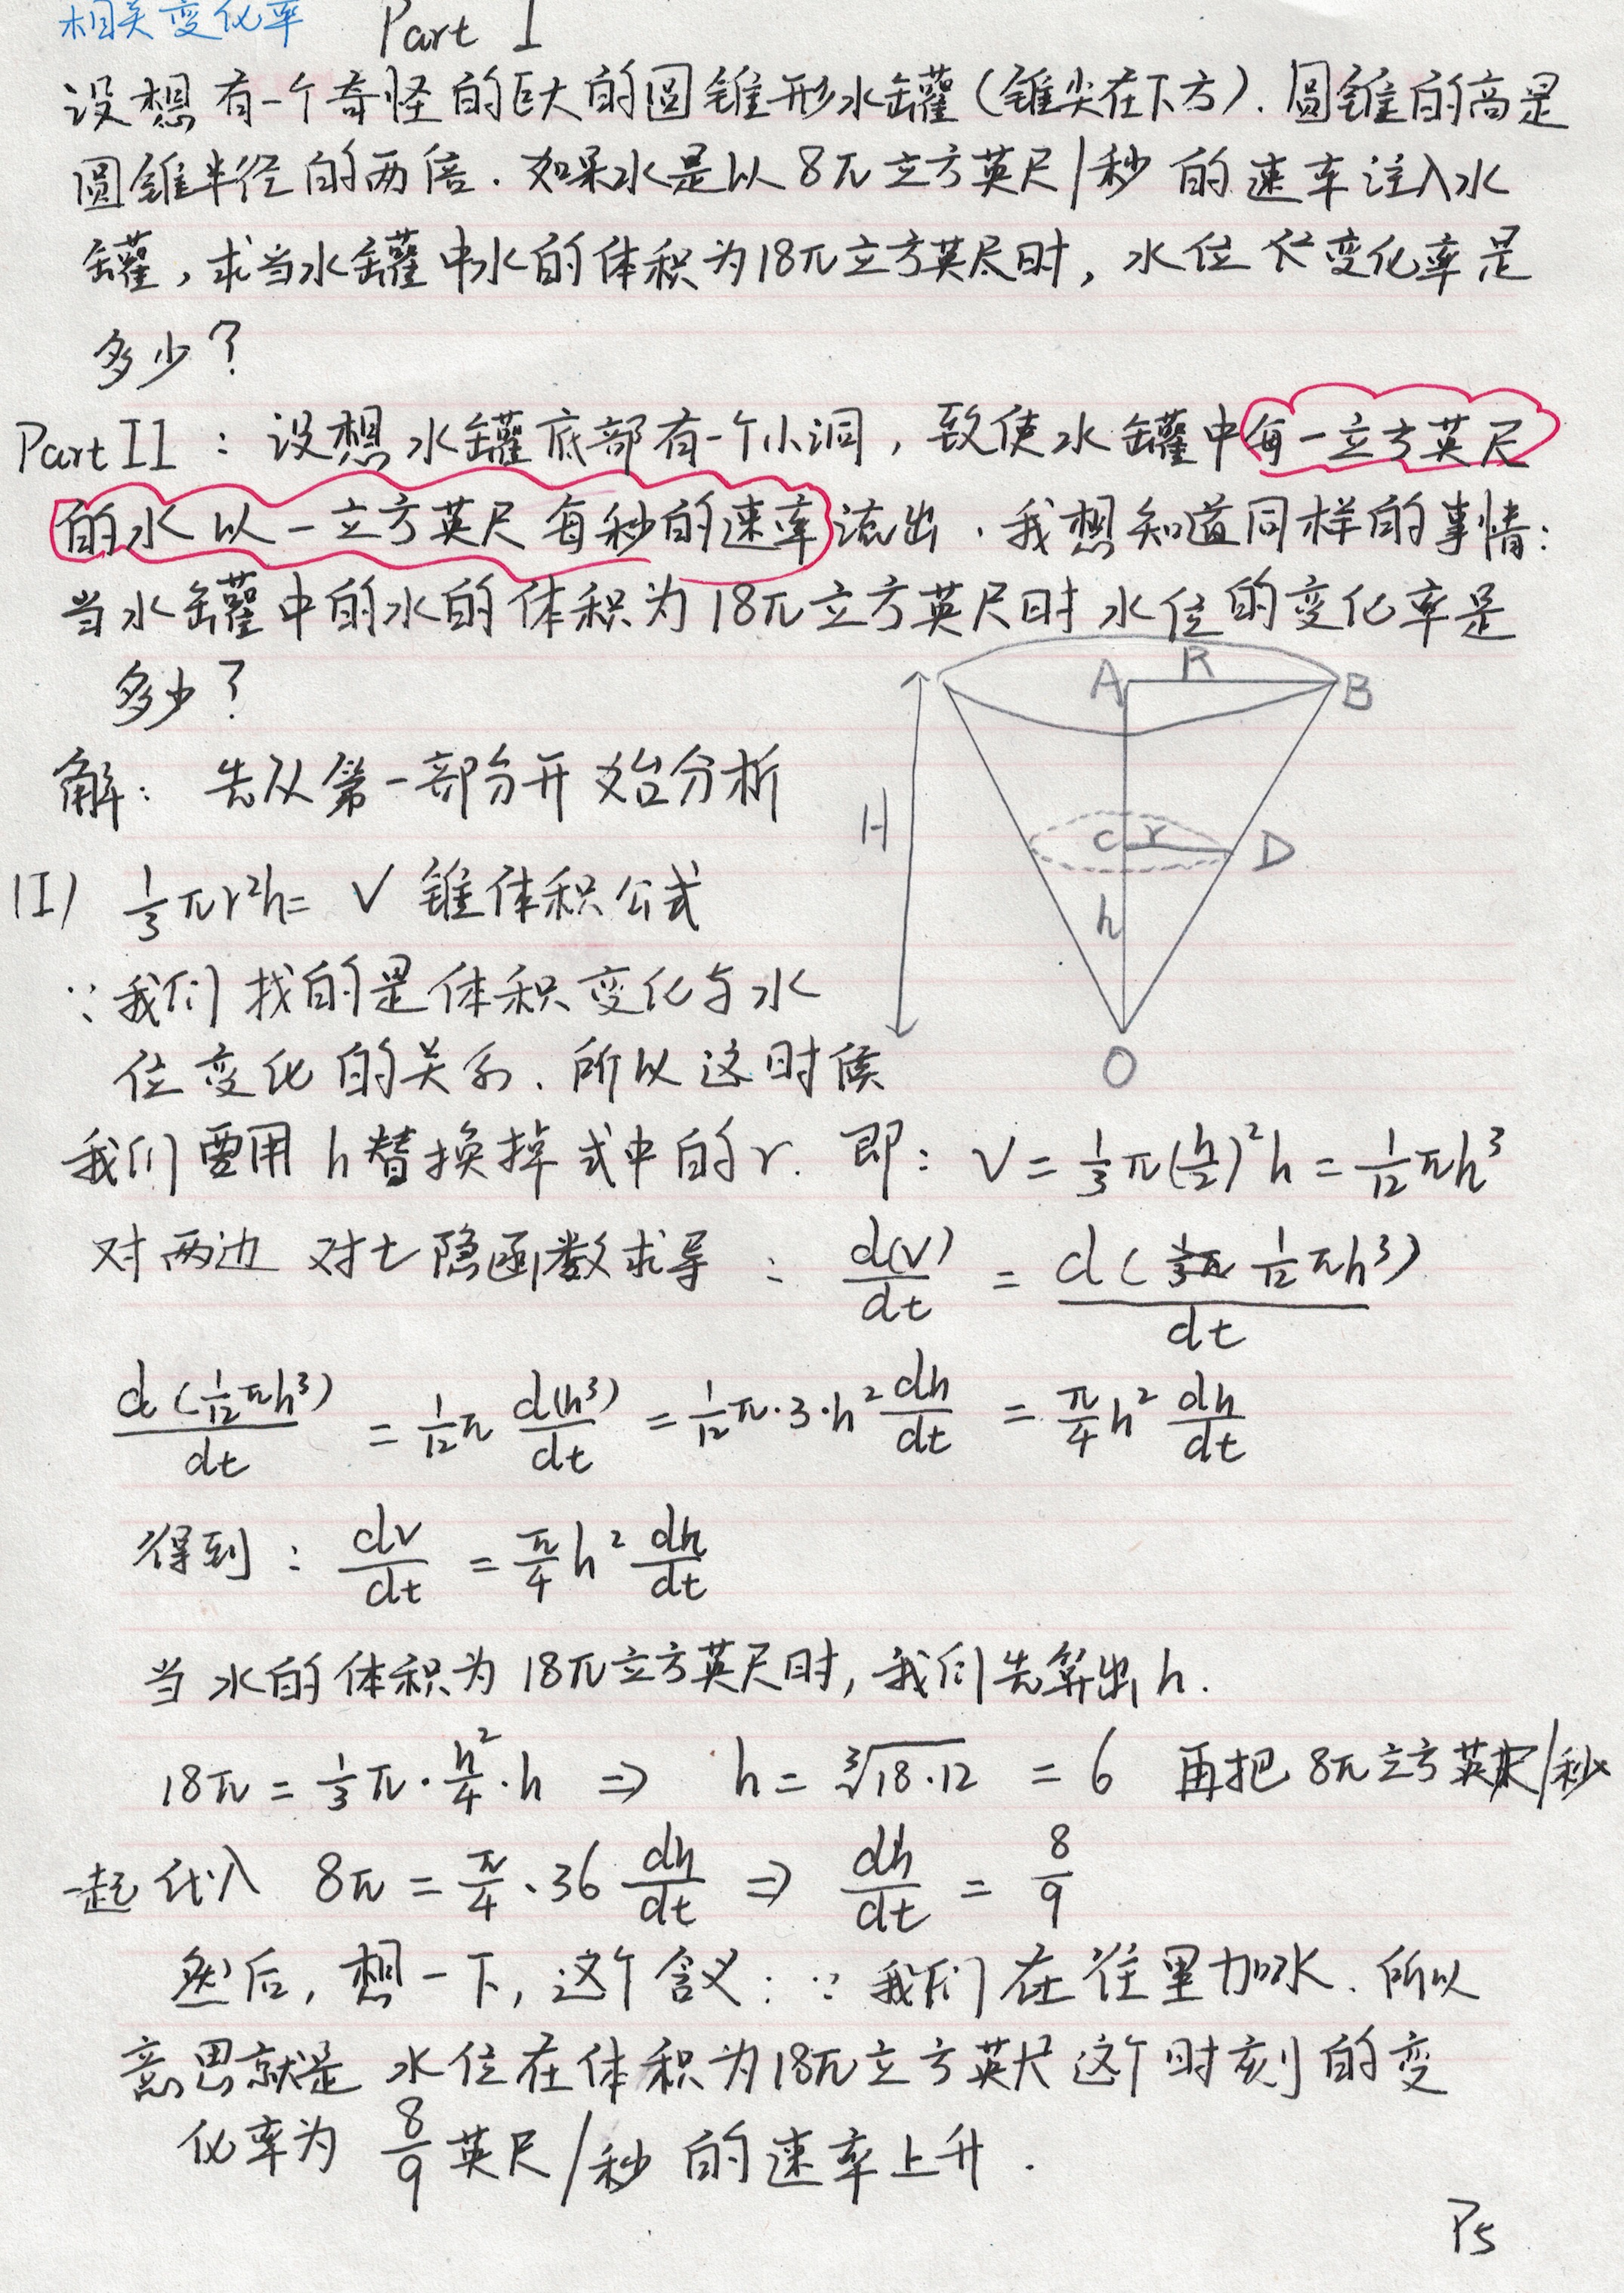 相关变化率 Part I
设想有一个奇怪的巨大的圆锥形水罐(锥尖在下方).圆锥的高是
圆锥半径的两倍.如果水是以8π立方英尺/秒的速率注入水
罐,求当水罐中水的体积为18π立方英尺时,水位的变化率是
多少?
Part II:设想水罐底部有一个小洞,致使水罐中每一立方英尺
的水以一立方英尺每秒的速率流出.我想知道同样的事情:
当水罐中的水的体积为18π立方英尺时水位的变化率是
多少?
A R B
解:先从第一部分开始分析
H
C r D
(I) 1/3 πr²h= V 锥体积公式
h
∵我们找的是体积变化与水
位变化的关系.所以这时候
O
我们要用h替换掉式中的r.即:V = 1/3 π(h/2)²h = 1/12 πh³
对两边对t隐函数求导:d(V)/dt = d(1/12 πh³)/dt
d(1/12 πh³)/dt = 1/12 π d(h³)/dt = 1/12 π·3·h² dh/dt = π/4 h² dh/dt
得到:dV/dt = π/4 h² dh/dt
当水的体积为18π立方英尺时,我们先算出h.
18π = 1/3 π·h²/4·h ⇒ h = ∛18·12 = 6 再把8π立方英尺/秒
一起代入 8π = π/4·36 dh/dt ⇒ dh/dt = 8/9
然后,想一下,这个含义:∵我们在往里加水.所以
意思就是水位在体积为18π立方英尺这个时刻的变
化率为8/9英尺/秒的速率上升.
P5